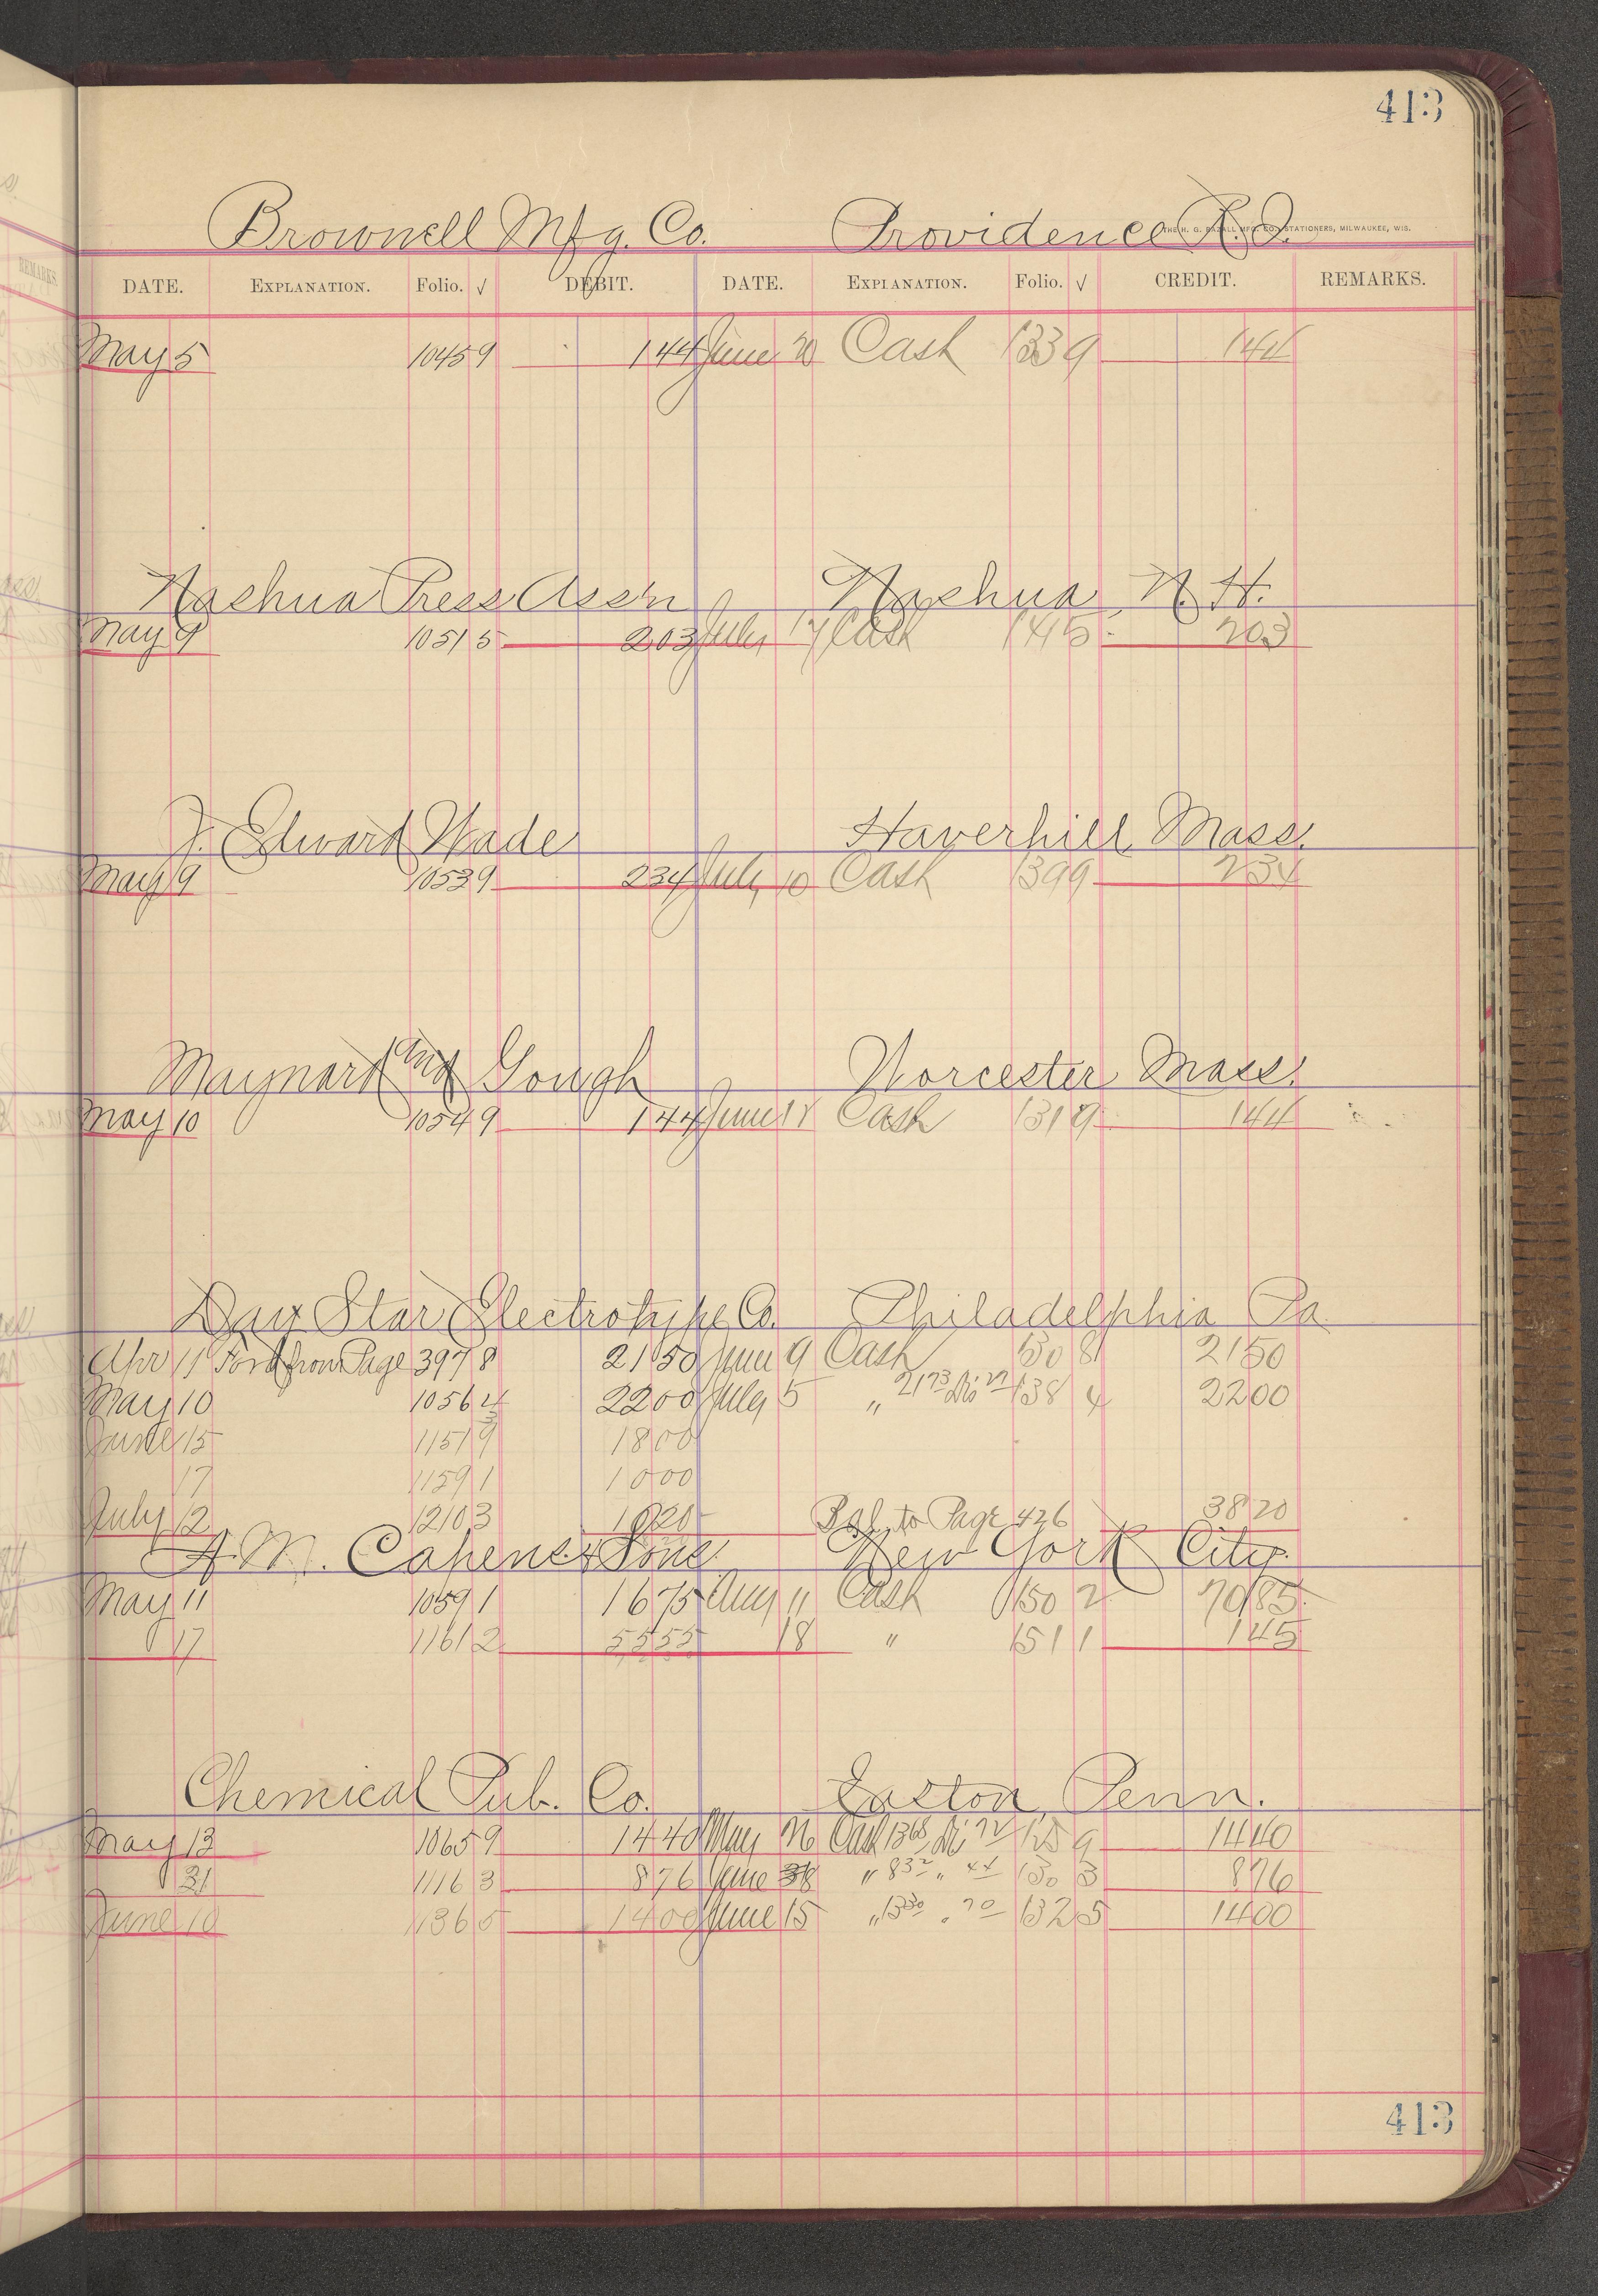 413
Brownell Mfg. Co. Providence R. I.
THE H. G. RAZALL MFG. CO., STATIONERS, MILWAUKEE, WIS.
DATE. EXPLANATION. Folio. √ DEBIT. DATE. EXPLANATION. Folio. √ CREDIT. REMARKS.
May 5 1045 9 144 June 20 Cash 133 9 144
Nashua Press Assn Nashua N. H.
May 9 1051 5 203 July 17 Cash 141 5 203
J. Edward Wade Haverhill Mass.
May 9 1053 9 234 July 10 Cash 139 9 234
Maynard and Gough Worcester Mass.
May 10 1054 9 144 June 18 Cash 131 9 144
Day Star Electrotype Co. Philadelphia Pa
Apr 11 Ford from Page 397 8 21 50 June 9 Cash 130 8 21 50
May 10 1056 4 22 00 July 5 " 138 4 22 00
June 15 1151 9 18 00
17 1159 1 10 00
July 12 1210 3 10 20 Bal. to Page 426 38 20
A. M. Capens & Sons New York City.
May 11 1059 1 16 75 Aug 11 Cash 150 2 70 85
17 1161 2 55 55 18 " 151 1 1 45
Chemical Pub. Co. Easton, Penn.
May 13 1065 9 14 40 May 26 Cash 13 68 Di 72 125 9 14 40
31 1116 3 8 76 June " 8 32 " 44 130 3 8 76
June 10 1136 5 14 00 June 15 " 13 30 " 70 132 5 14 00
413